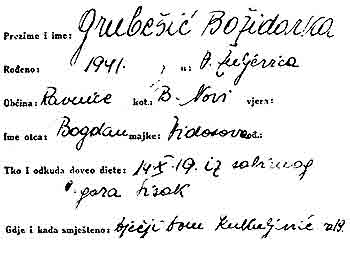 Prezime i ime: Grubešić Božidarka
Rođeno: 1941. ; u:
Općina: Ravnice kot.: B. Novi vjera:
Ime otca: Bogdan majke: Vidosova rođ.:
Tko i odkuda doveo diete: 14.X.19. iz sabirnog
gora Sisak
Gdje i kada smješteno: Dječji dom